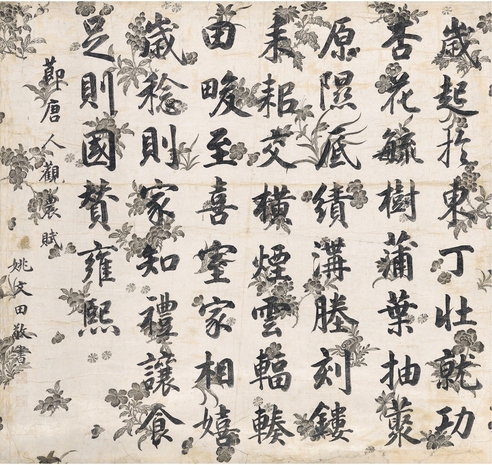 歲起於東丁壯就功
杏花毓樹蒲葉抽藂
原隰底績溝塍刻鏤
耒耜交橫煙雲輻輳
田畯至喜室家相嬉
歲稔則家知禮讓食
足則國贊雍熙
節唐人觀農賦
姚文田敬書